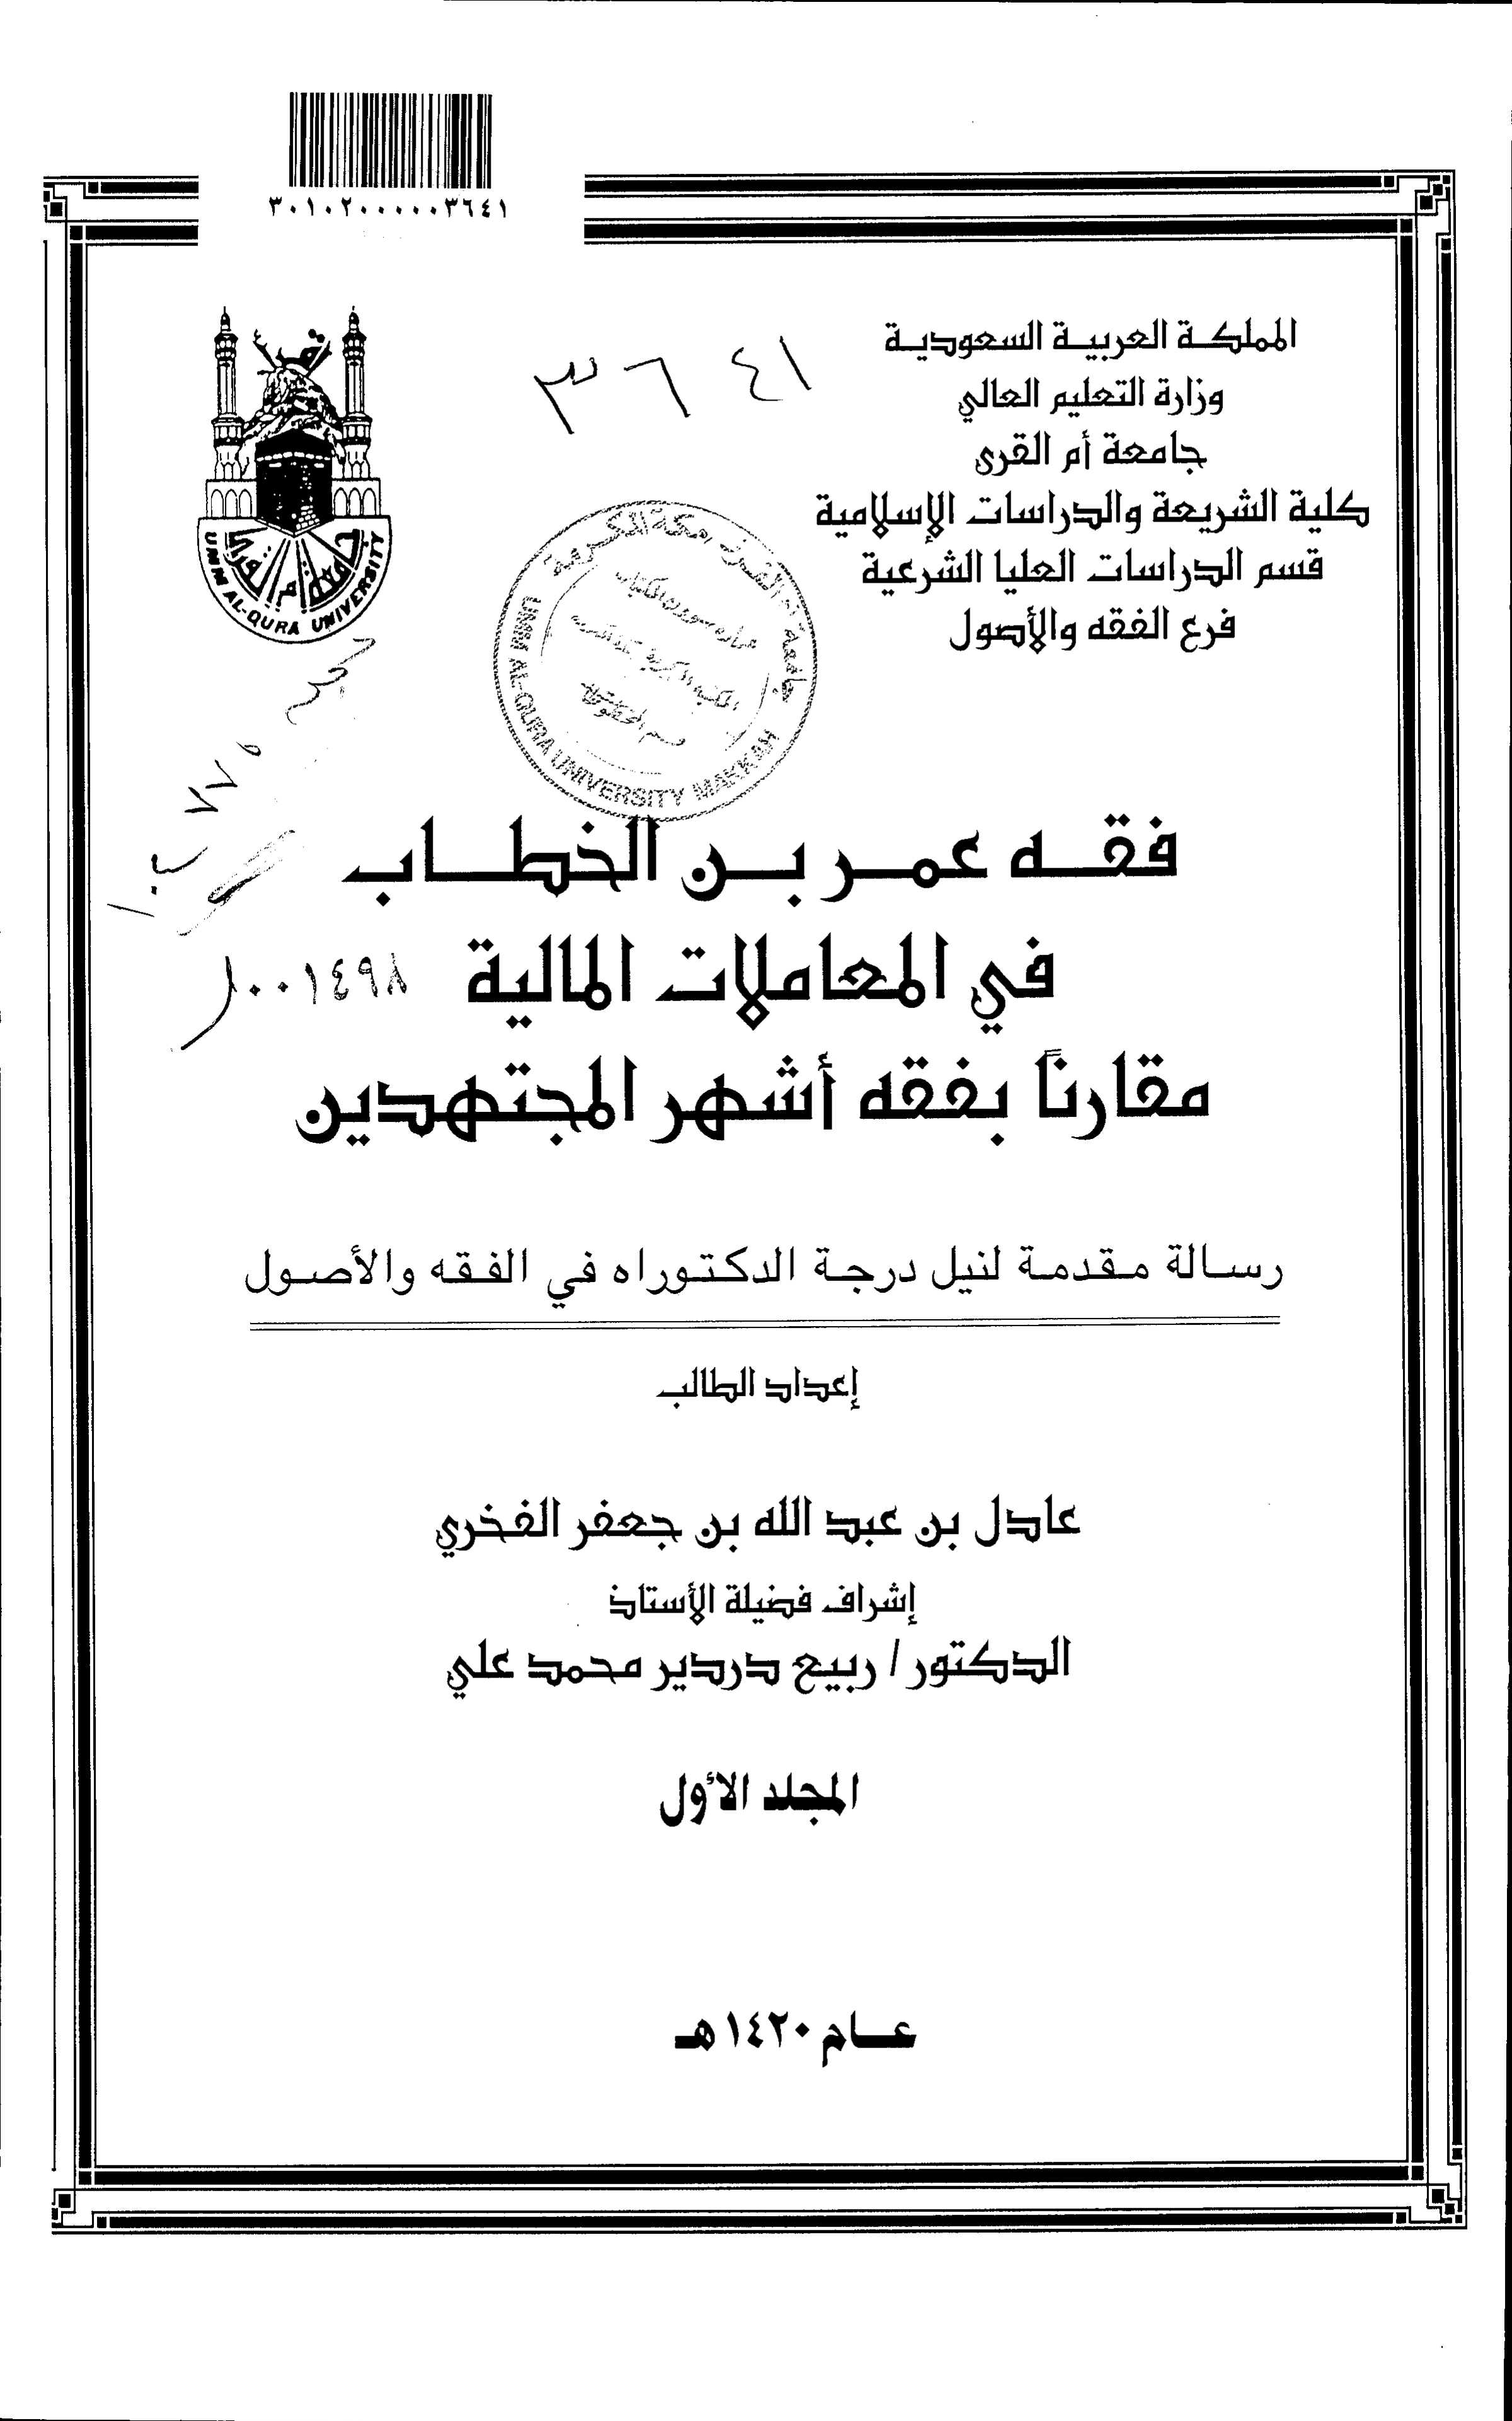 ٣٠١٠٢٠٠٠٠٠٣٦٤١
المملكة العربية السعودية
وزارة التعليم العالي
جامعة أم القرى
كلية الشريعة والدراسات الإسلامية
قسم الدراسات العليا الشرعية
فرع الفقه والأصول
٣٦٤١
جامعة أم القرى
UMM AL-QURA UNIVERSITY
UMM AL-QURA UNIVERSITY MAKKAH
فقه عمر بن الخطاب
في المعاملات المالية
٠٠١٤٩٨
مقارنًا بفقه أشهر المجتهدين
رسالة مقدمة لنيل درجة الدكتوراه في الفقه والأصول
إعداد الطالب
عادل بن عبد الله بن جعفر الفخري
إشراف فضيلة الأستاذ
الدكتور / ربيع دردير محمد علي
المجلد الأول
عام ١٤٢٠هـ